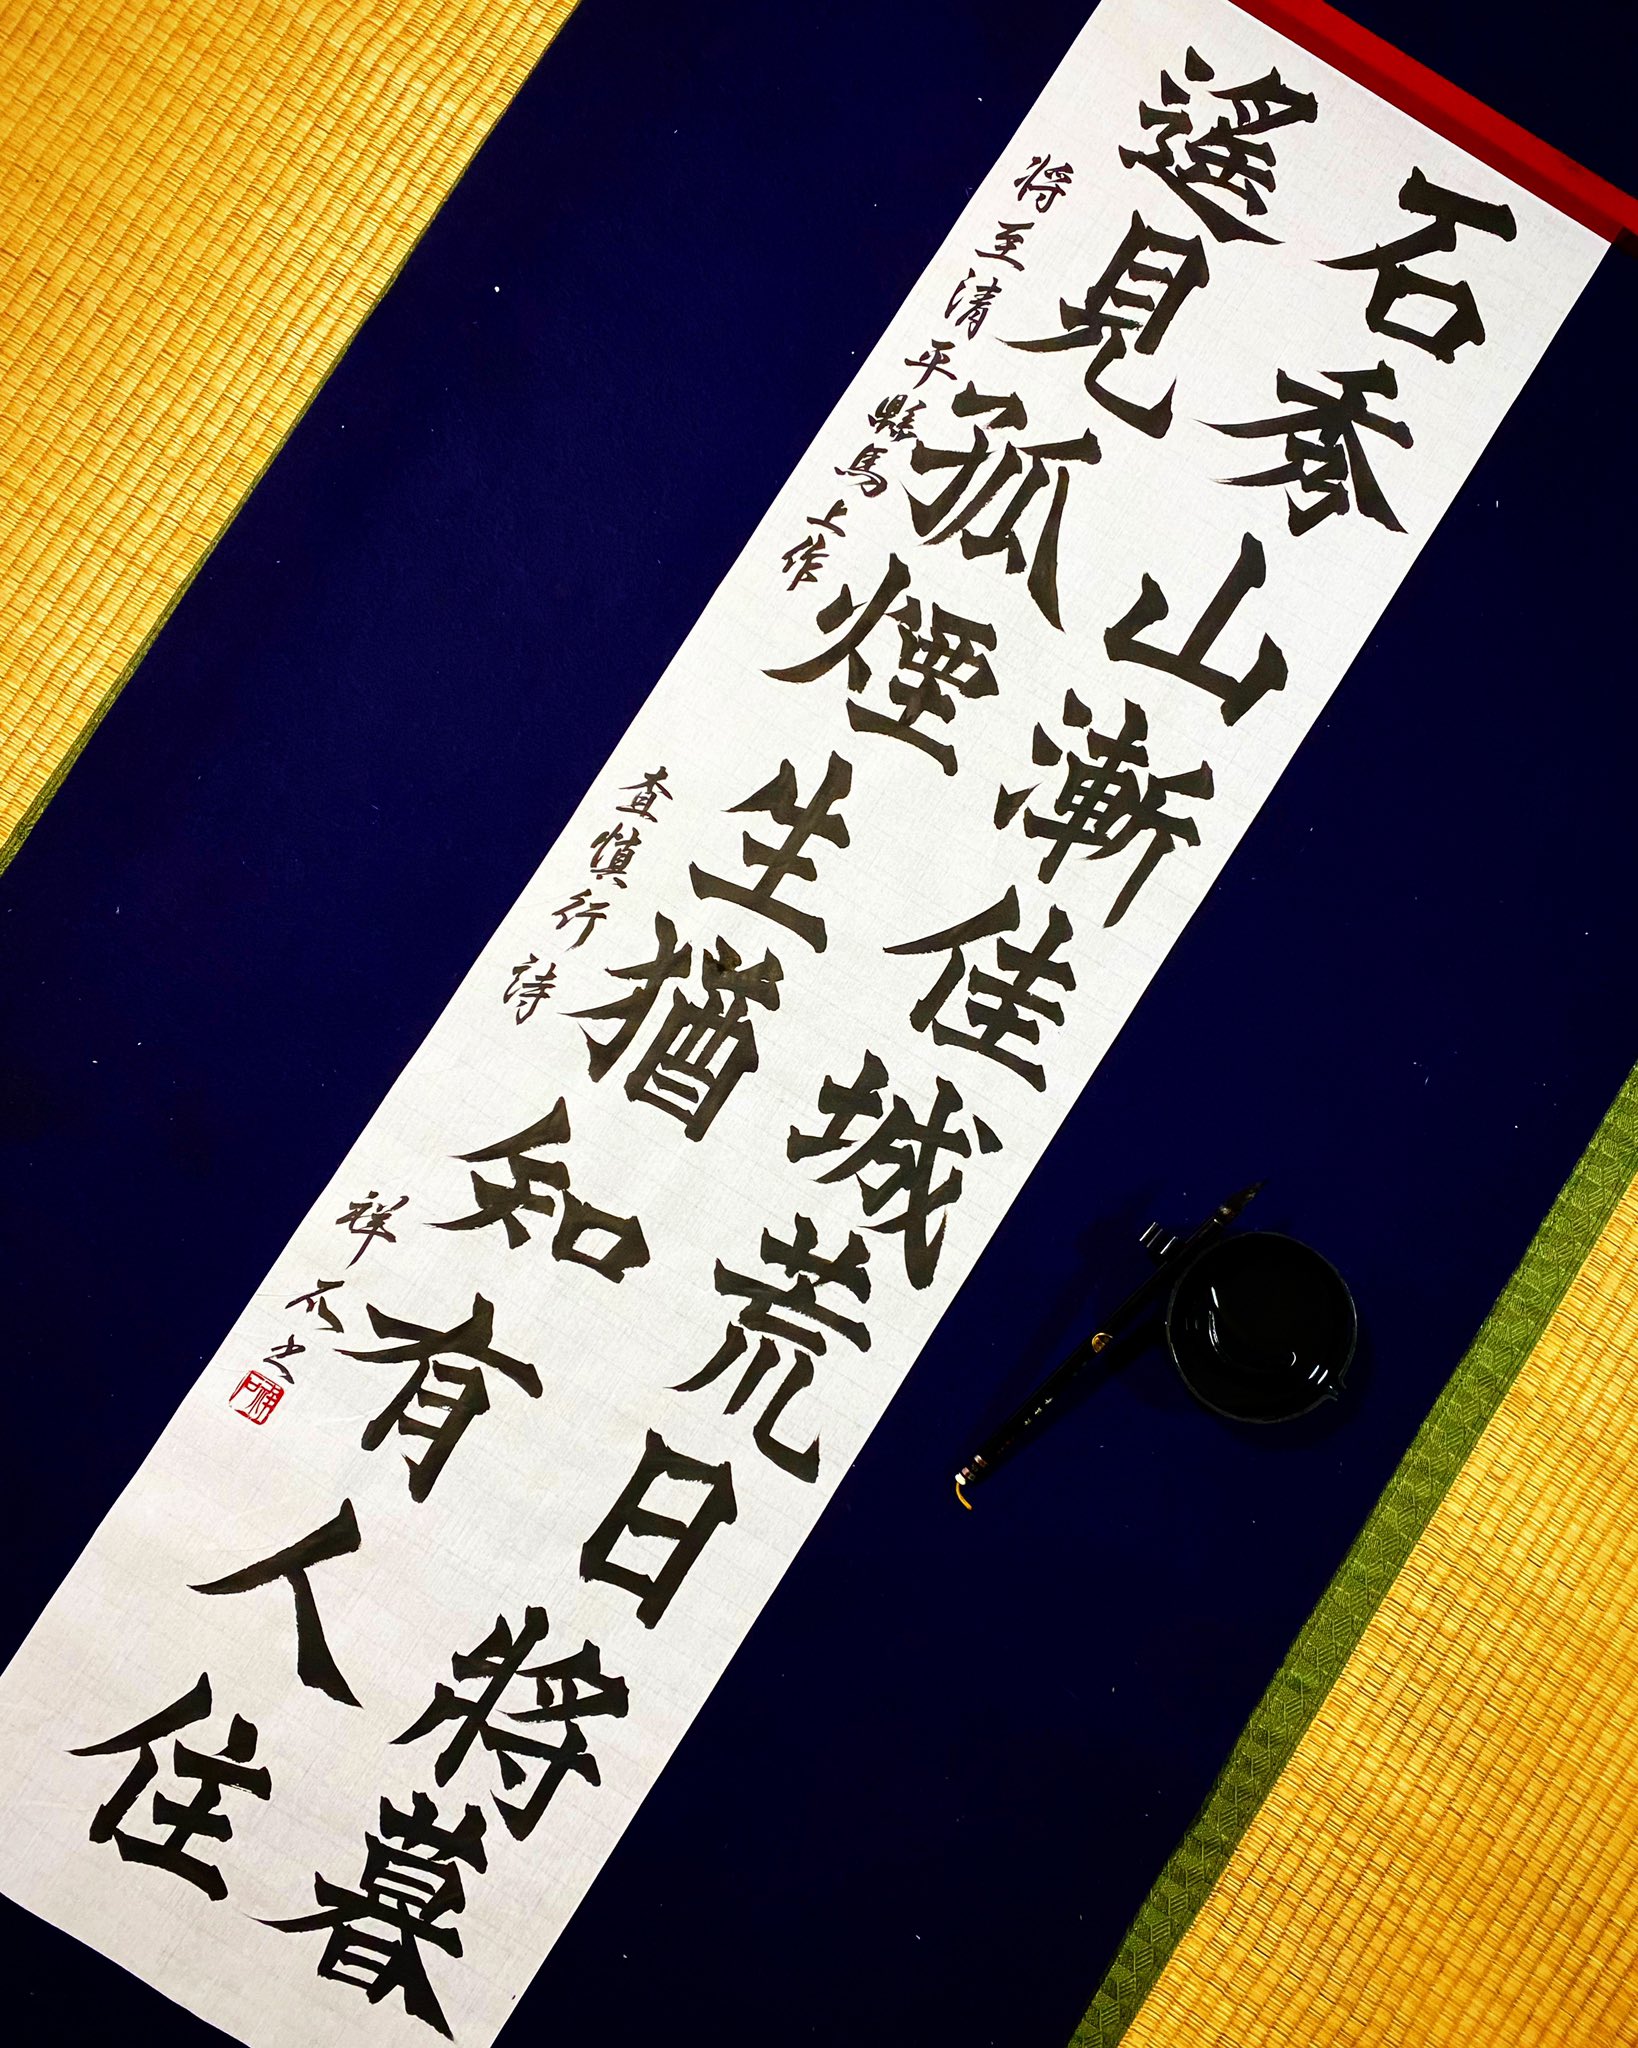 石秀山漸佳城荒日將暮
遙見孤煙生猶知有人住
将至清平縣馬上作
查慎行詩
祥石書